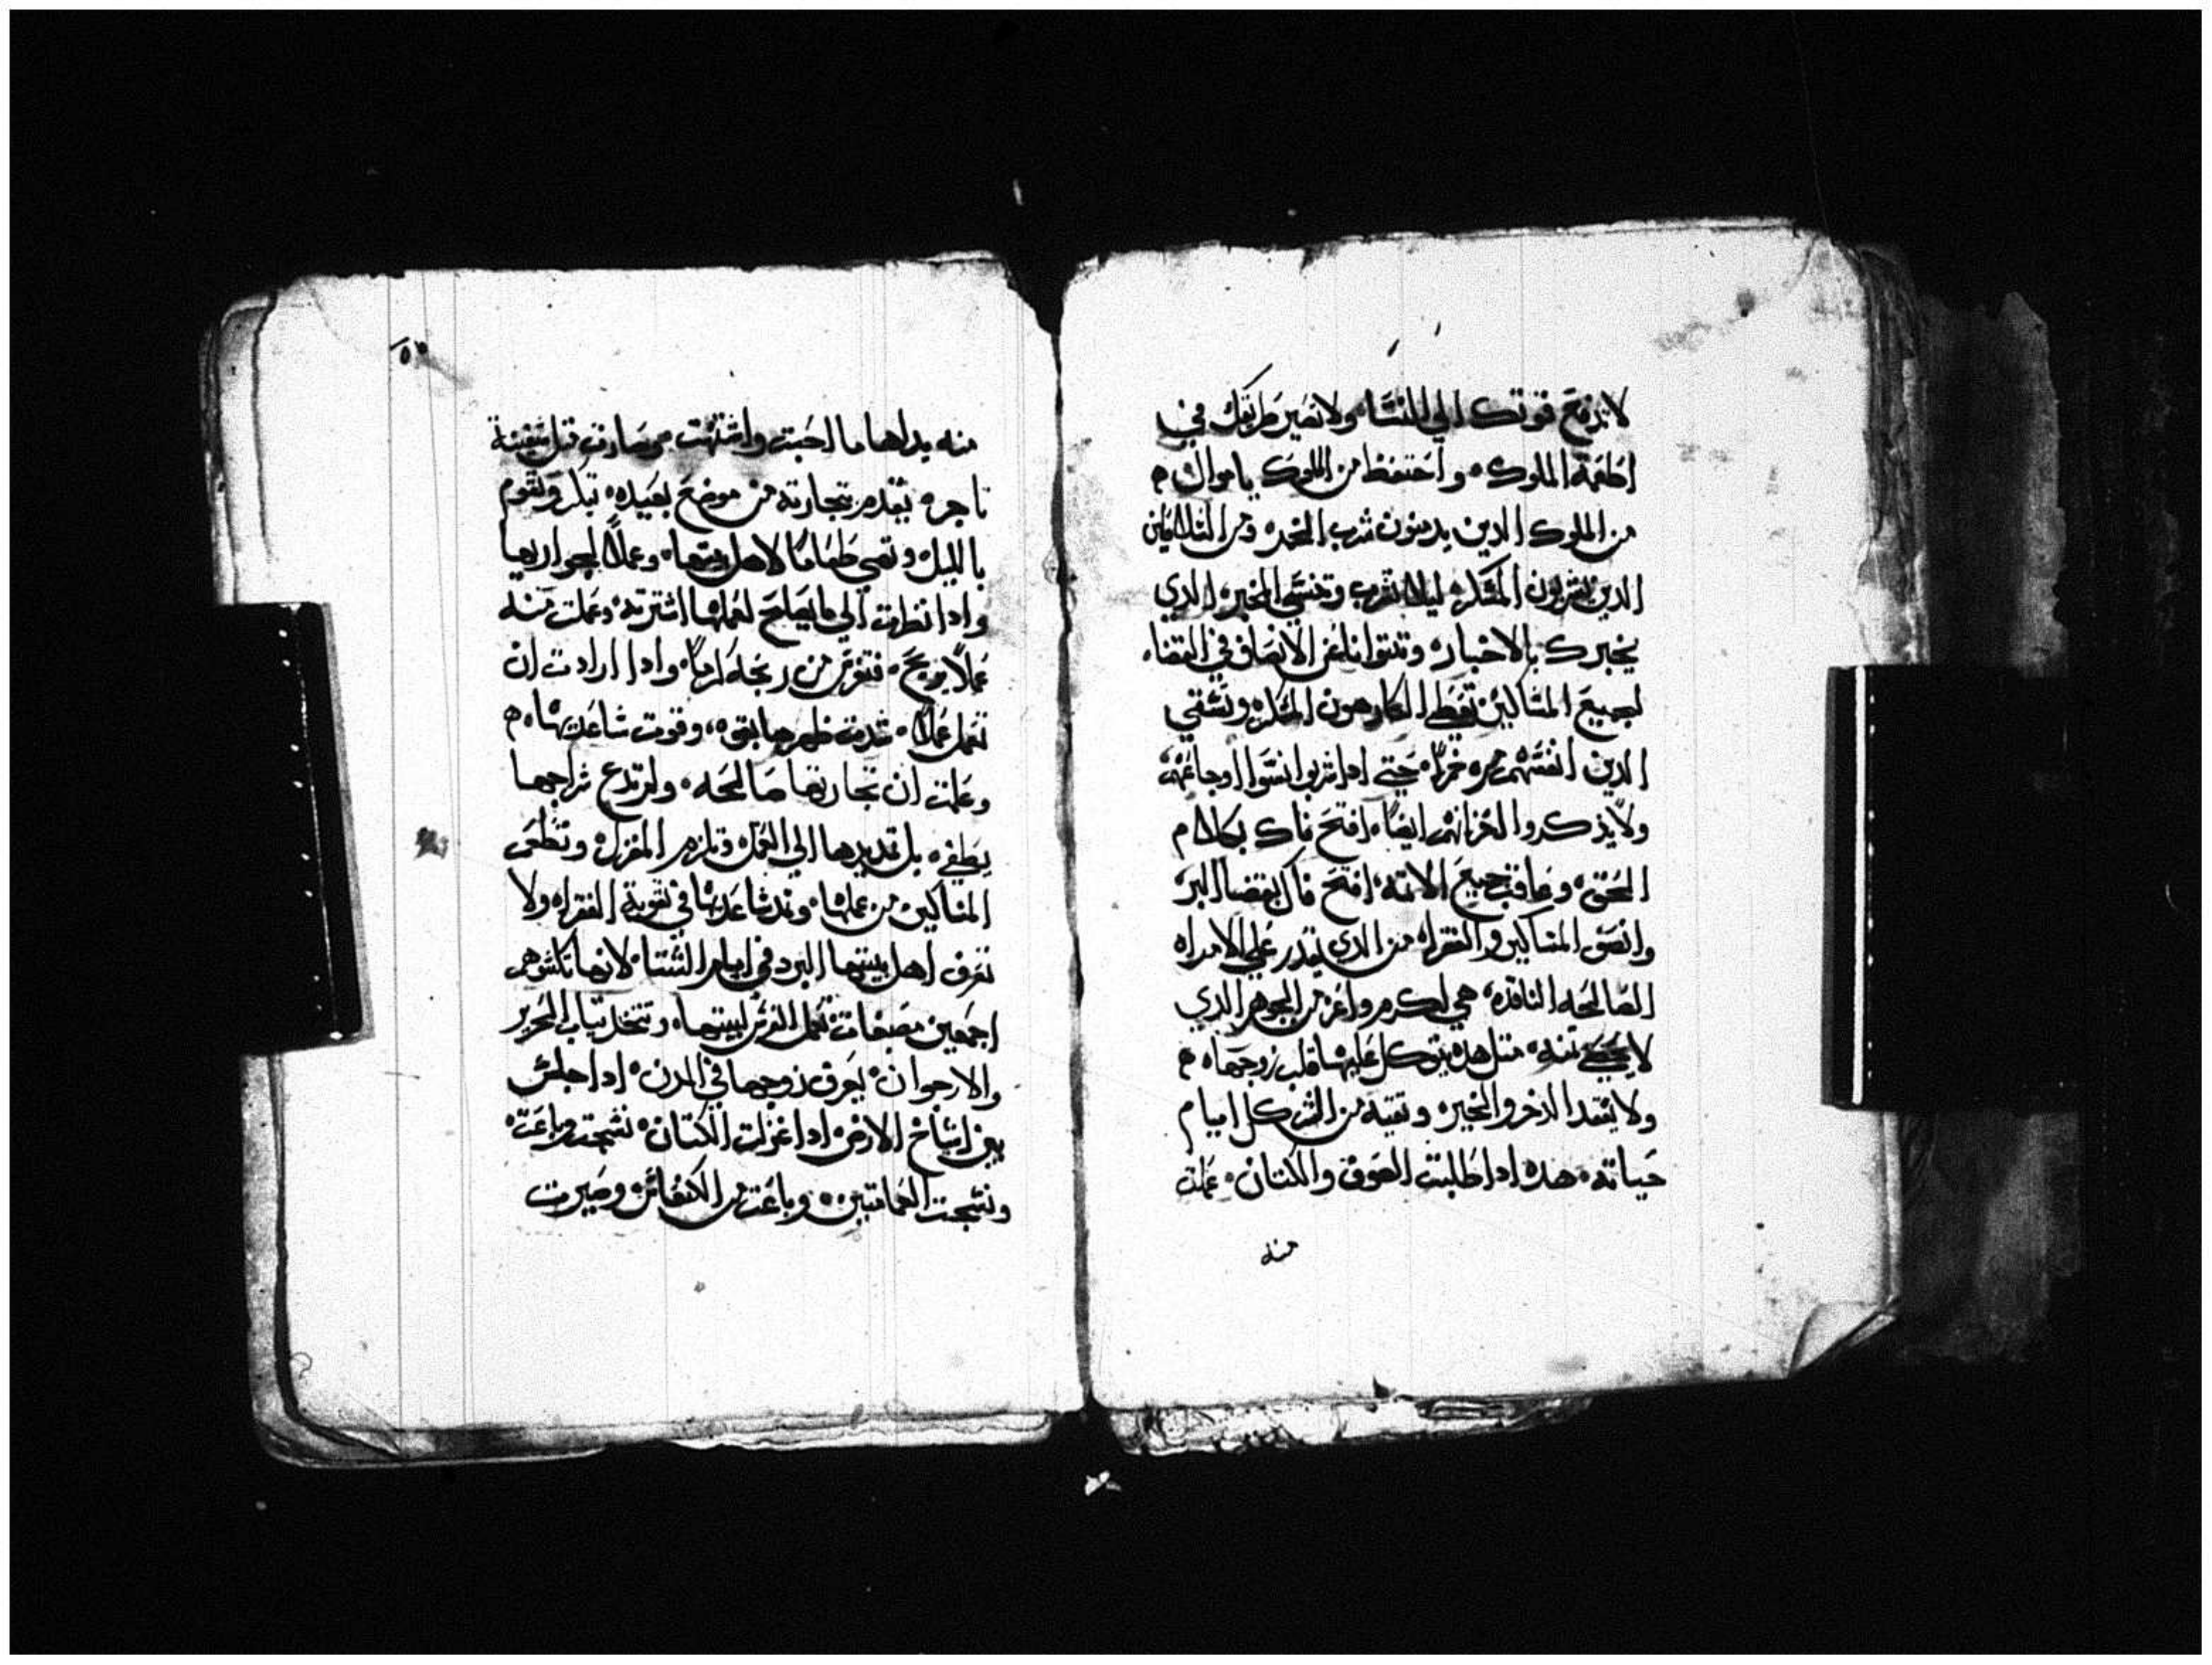 لا تدفع قوتك الي النسا، ولا تصير طريقك في
اطغمة الملوك، واحتفظ من الملوك ياموال م
من الملوك الدين يدمنون شرب الخمر، ومن السلاطين
الدين يشربون المسكر، ليلا تشرب وتنسي الخير، الدي
يخبرك بالاخبار،
لجميع المساكين الكارهون المسكر، وتسقي
الدين انفسهم مره خمراً، حتي ادا شربوا انسوا اوجاعهم،
ولا يذكروا احزانهم ايضاً، افتح فاك بكلام
الحق، وعاقب جميع الاتمه، افتح فاك بقضا البر،
وانصف المساكين والفقرا، من الدي يقدر علي الامراه
الصالحه النافده، هي اكرم واعز من الجوهر الدي
تمنه، متل هده يتوكل عليها قلب زوجها، م
ولا يفقد الدخر والخير، وتقيه من الشر كل ايام
حياته، هده ادا طلبت الصوف والكتان، عملت
منه
٥٣
منه بيداها ما احبت واشتهت، وصارت متل سفينة
تاجره يقدم بتجارته من موضع بعيده، تبكر وتقوم
بالليل وتهي طعاماً لاهل بيتها، وعملاً لجواريها
وادا نظرت الي ما يصلح لعملها اشترته، وعملت منه
عملاً يربح، فتغرس من ربحه كرماً، وادا ارادت ان
تعمل عملاً، شدت ظهرها بقوه، وقوت ساعديها، م
وعلمت ان تجارتها صالحه، ولم تدع سراجها
يطفي، بل تمد يدها الي العمل، وتلزم المغزل، وتطعم
المساكين من عملها، وتمد ساعديها في تقوية الفقرا، ولا
تعرف اهل بيتها البرد في ايام الشتا، لانها تكسوهم
اجمعين تعمل الفرش لبيتها، وتتخد تياب الحرير
والارجوان، يعرف زوجها في المدن، ادا جلس
بين اشياخ الارض، ادا غزلت الكتان، نسجت وباعت،
ونسجت العمامتين، وباعت من الكنعانين وصيرت